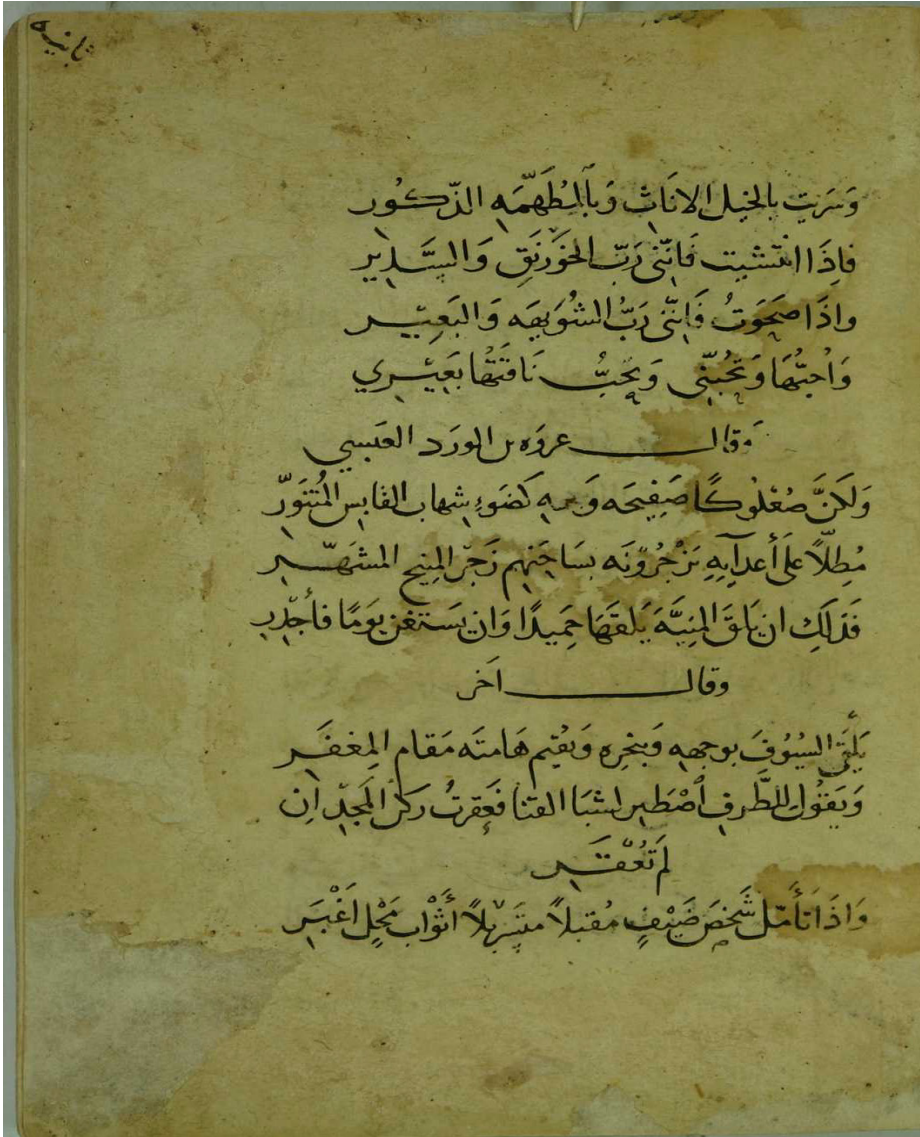 ثانية
وَسَرَيت بالخيل الاناثِ وَبالمُطَهَّمَهِ الذّكُورِ
فاِذَا انتشيت فَاِنّنى رَبّ الخوَرْنَقِ وَالسَّدِيرِ
واذَا صَحَوتُ فَاِنّنى رَبُّ الشُوَيهَه وَالبَعِيْرِ
وَاُحبّهَا وَتُحبّنى وَيُحِبُّ نَاقَتَهَا بَعِيْرِي
وَقالـــ عروَه بن الورَد العَبسي
وَلكنَّ صُعْلوكًا صَفِيحَه وَجهِهِ كَضَوءِ شِهابِ القابِس المُتَنوّرِ
مُطِلّاً عَلَى أعدآيِهِ يَزْجُرُونَه بسَاحَتِهِم زَجْرَ المنِيحِ المشَهّرِ
فَذلكِ ان يَلقَ المِنيَّهَ يَلقَهَا حَمِيدًا وَان يَستغنِ يَومًا فأجْدِرِ
وقالـــ اخر
يَلقَى السيُوُفَ بوجههِ وَبنحرِه وَيقيم هَامتَه مَقام المِغفَرِ
وَيَقوُل للطَّرفِ اصْطَبِر لشبَا القنا فَعَقرتُ ركنَ المَجدِ اِن
لَم تُعْقَرِ
وَاذَا تأمَّل شَخصَ ضَيْفٍ مُقبلاً متسَربلاً أثْوابَ مَحْلٍ اَغْبَرِ